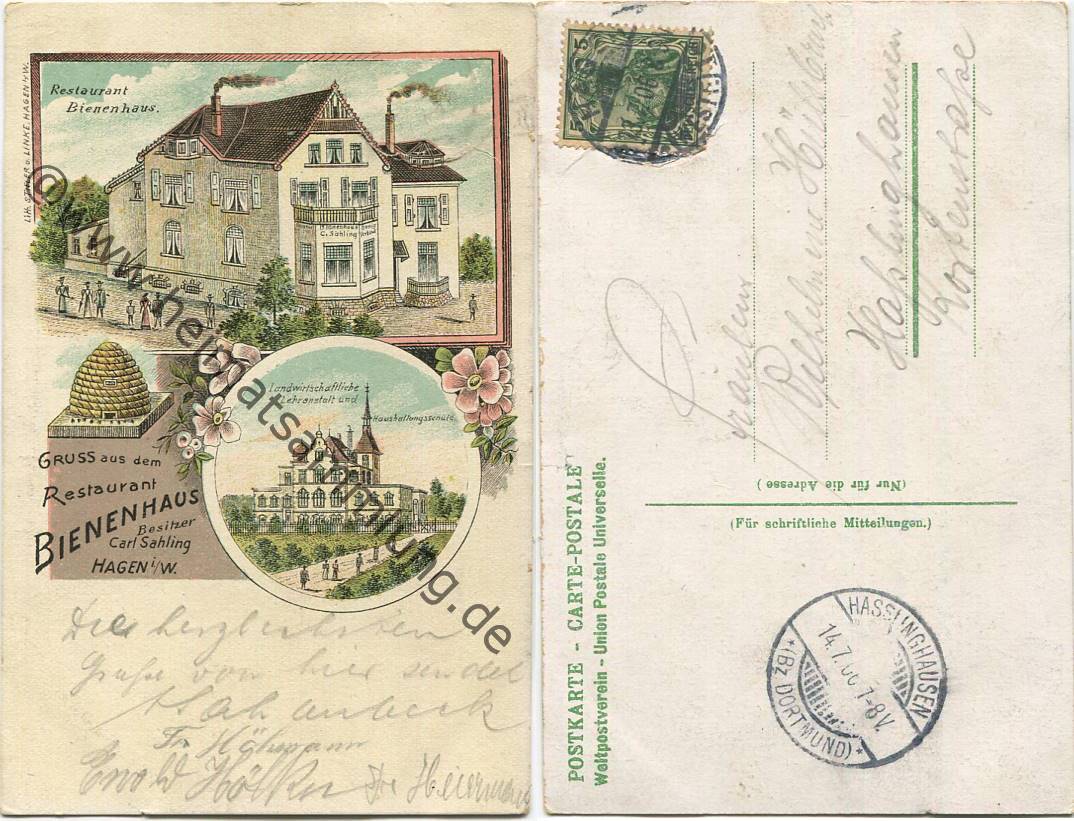 Restaurant
Bienenhaus.
Lith. STEHLER u. LINKE. HAGEN i/W.
Bienenhaus
C. Sähling
Landwirtschaftliche
Lehranstalt und
Haushaltungsschule
GRUSS aus dem
Restaurant
BIENENHAUS
Besitzer
Carl Sähling
HAGEN i/W.
Die herzlichsten
Grüße von hier sendet
Fr. Höhmann
Ewald Hölken Fr. Heiermann
© www.heimatsammlung.de
5
Fräulein
Wilhelmine
Haßlinghausen
Kortenstraße
(Nur für die Adresse)
(Für schriftliche Mitteilungen.)
POSTKARTE - CARTE-POSTALE
Weltpostverein - Union Postale Universelle.
HASSLINGHAUSEN
14.7.06.7-8V.
*(Bz DORTMUND)*